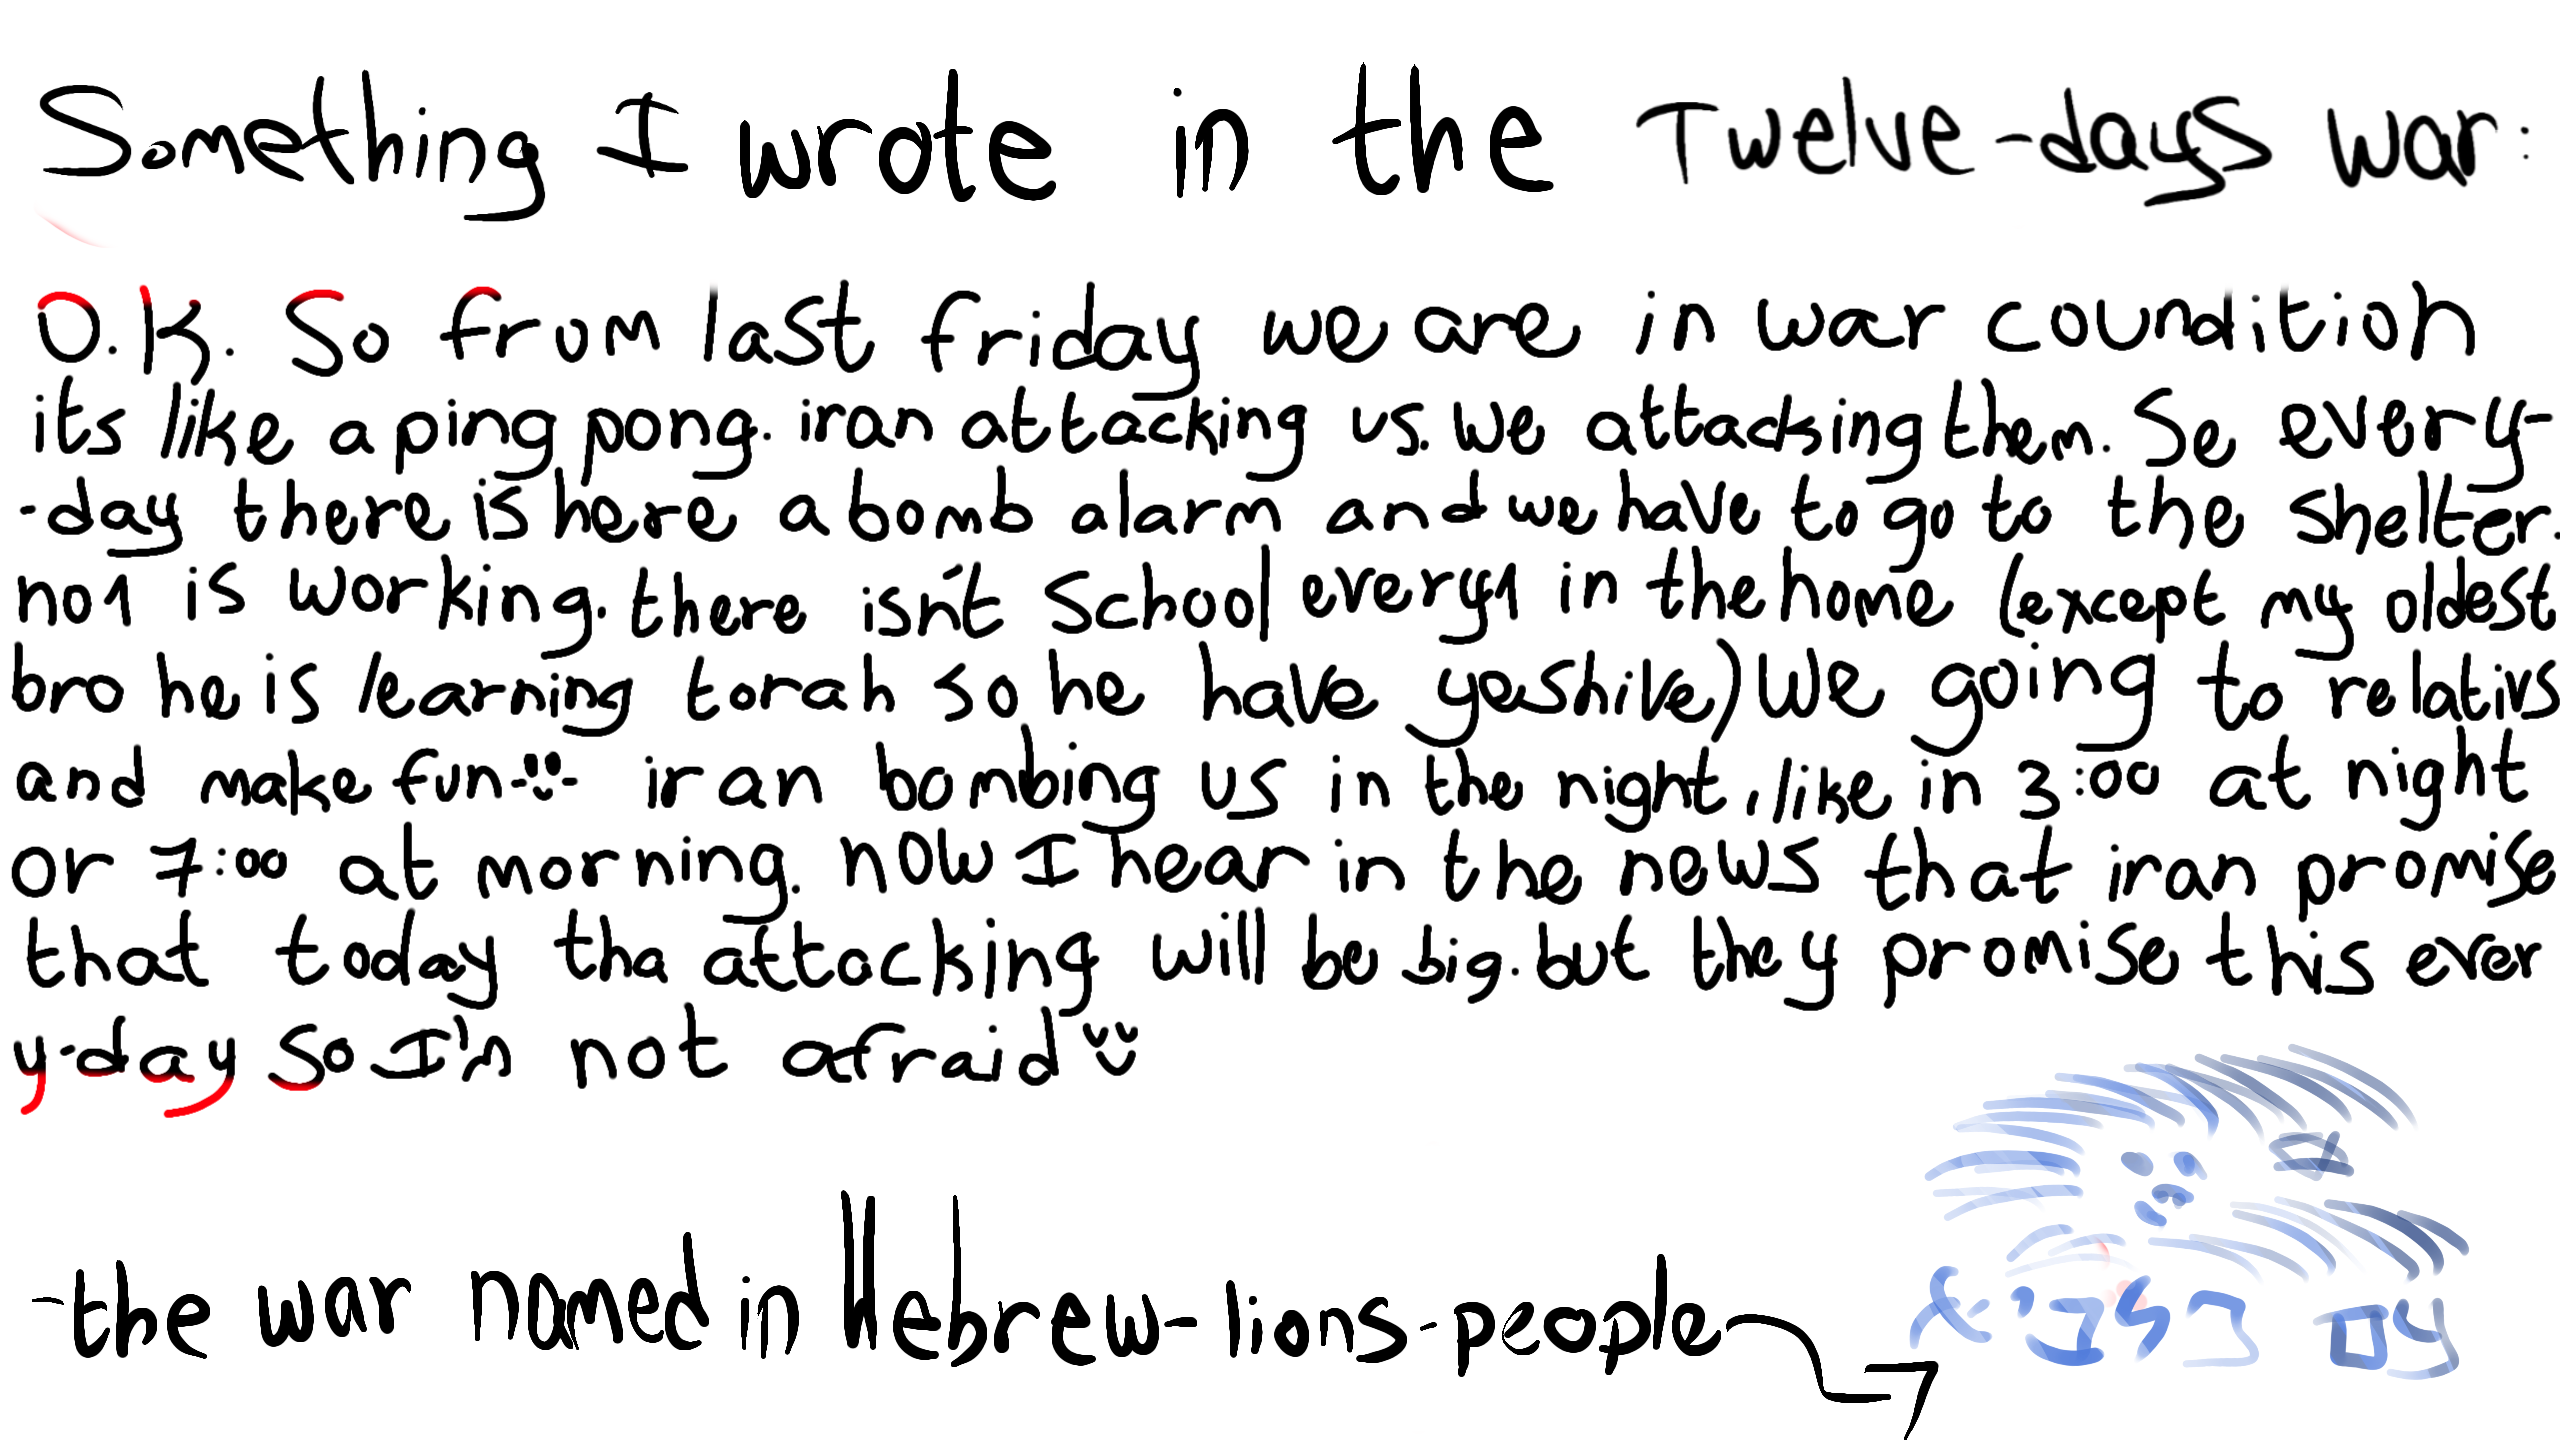 Something I wrote in the Twelve-days war:
O.K. So from last friday we are in war coundition
its like a ping pong. iran attacking us. we attacking them. Se every-
-day there is here a bomb alarm and we have to go to the shelter.
no1 is working. there isn't school every1 in the home (except my oldest
bro he is learning torah so he have yeshive) we going to relativs
and make fun iran bombing us in the night, like in 3:00 at night
or 7:00 at morning. now I hear in the news that iran promise
that today tha attacking will be big. but they promise this ever
y-day so I'm not afraid
-the war named in Hebrew-lions-people
עם כלביא